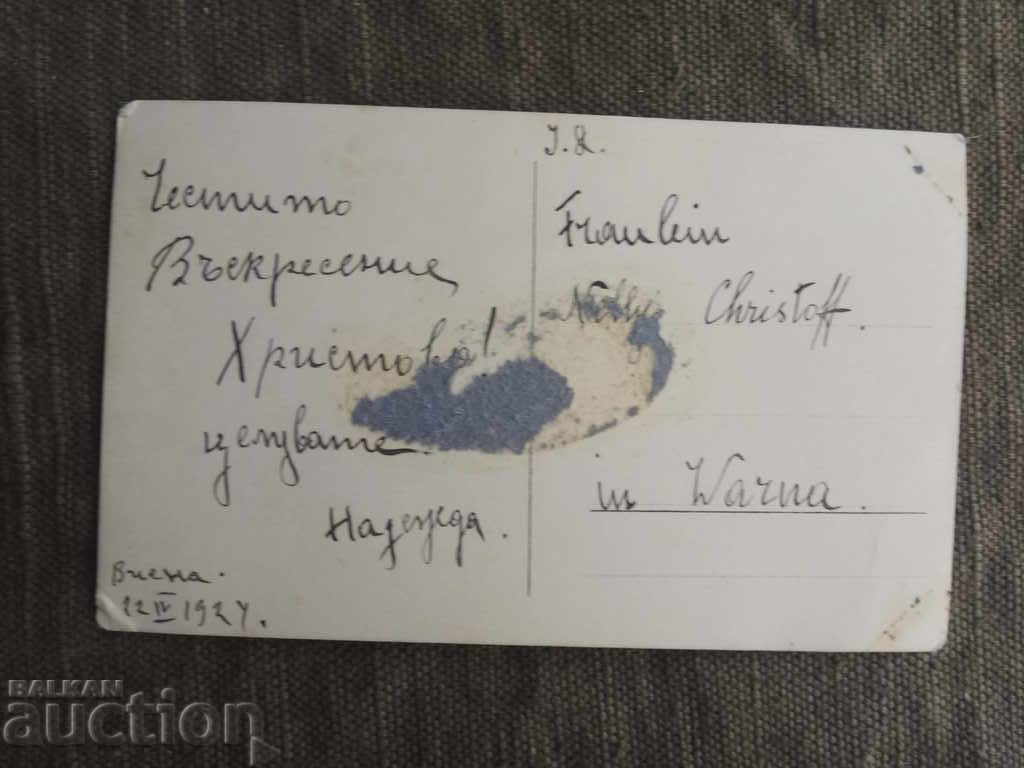 Честито
Въскресение
Христово!
целувате
Надежда.
Виена.
22 IV 1924.
J. R.
Fraulein
Nelly Christoff.
in Warna.
BALKAN
auction